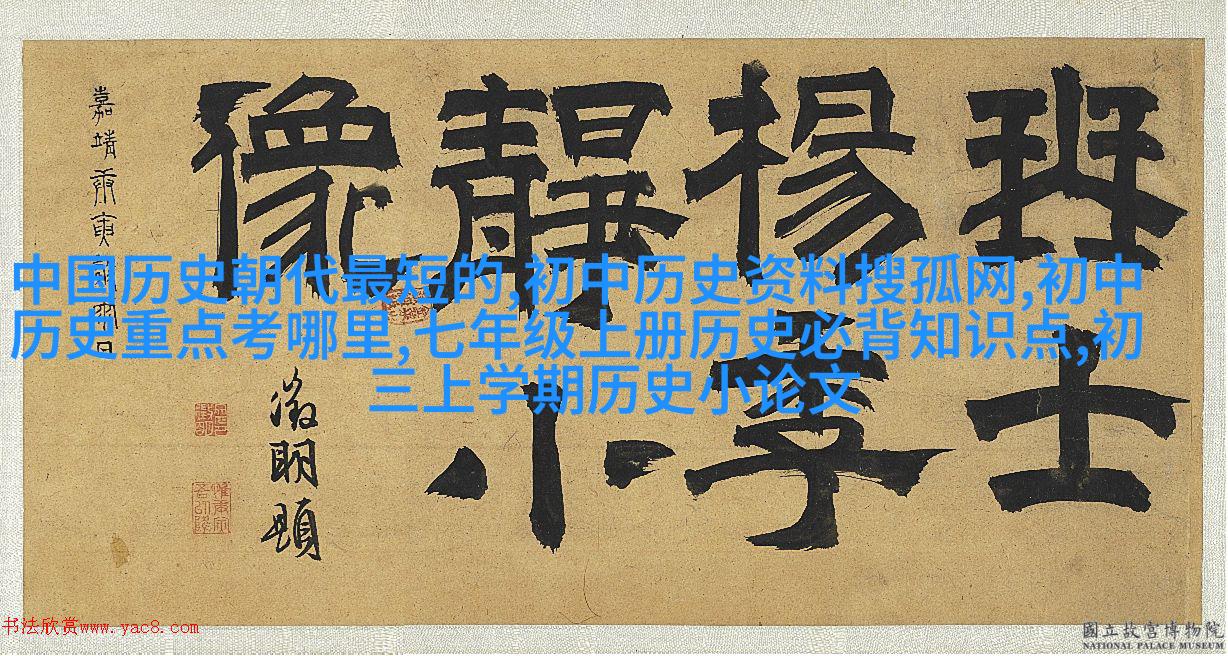 珡士
楊季
靜小
像
嘉靖庚寅
徵明題
中国历史朝代最短的,初中历史资料搜孤网,初中
历史重点考哪里,七年级上册历史必背知识点,初
三上学期历史小论文
书法欣赏www.yac8.com
國立故宮博物院
NATIONAL PALACE MUSEUM